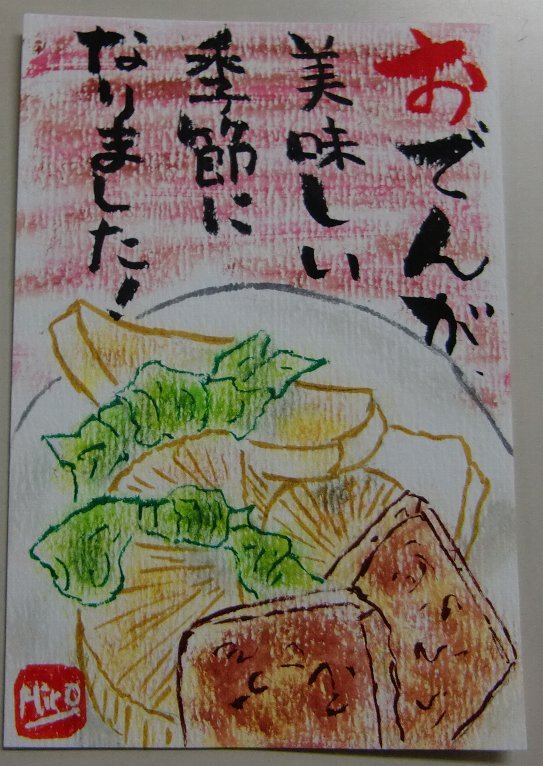 おでんが
美味しい
季節に
なりました!
Hiro